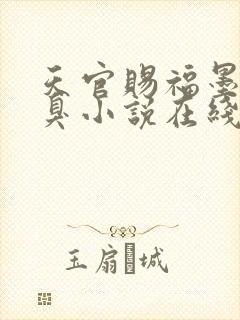 天官賜福墨
臭小説在綫
玉扇城